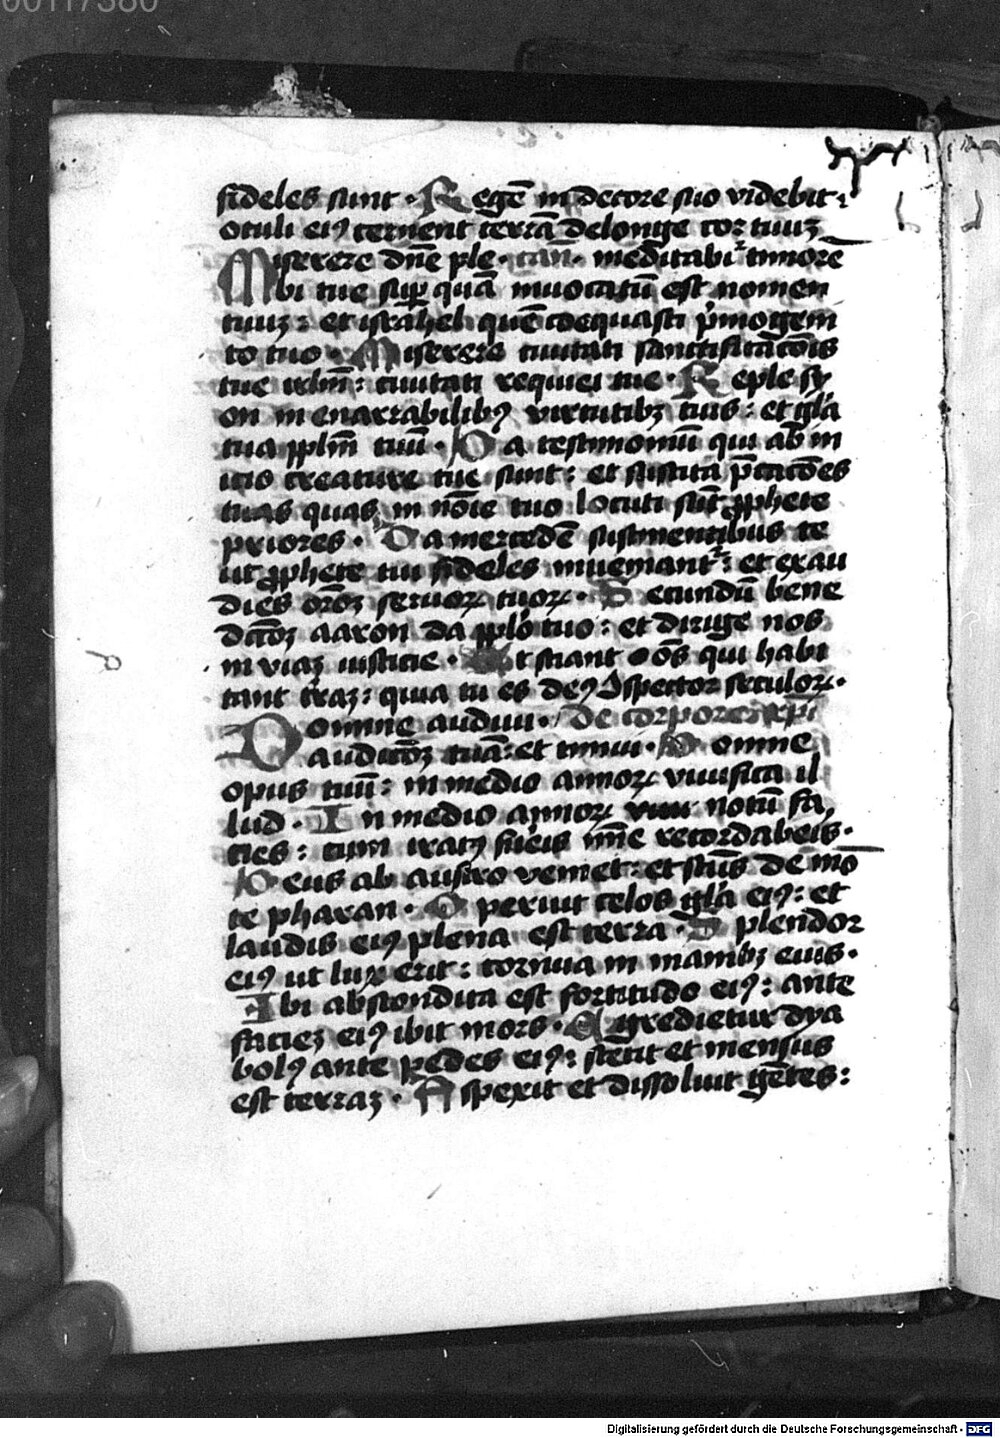 00117380
fideles sunt · Regē in decore suo videbit·
oculi eiꝰ cernent terrā de longe cor tuuȝ
Miserere dn̄e ple· can̄· meditabit͛ timorē
bi tue suꝑ quā inuocatū est nomen
tuuȝ : et israhel quē coequasti p̓mogeni
to tuo · Miserere ciuitati sanctificac̄ois
tue irl̄m : ciuitati requiei tue · Reple sy
on inenarrabilibꝰ virtutibȝ tuis : et gl̓a
tua ppl̄m tuū · Da testimoniū qui ab in
itio creature tue sunt : et suscita p̄cac̄ões
tuas quas in nōie tuo locuti sūt ꝓphete
priores · Da mercedē sustinentibus te
ut ꝓphete tui fideles inueniant͛ : et exau
dies or̄ōȝ seruoꝝ tuoꝝ · Secundū bene
dcōȝ aaron da ppl̓o tuo : et dirige nos
in viaȝ iusticie · Et sciant oēs qui habi
tant t̓raȝ : quia tu es deꝰ 9spector seculoꝝ·
Domine audiui· De corpore xp̄i
audicōȝ tuā : et timui · Domine
opus tuū : in medio annoꝝ viuifica il
lud · In medio annoꝝ notū fa
cies : cum iratꝰ fueris mīe recordaberis·
Deus ab austro veniet : et sc̄us de mō
te pharan · Operuit celos gl̓a eiꝰ : et
laudis eiꝰ plena est terra · Splendor
eiꝰ ut lux erit : cornua in manibȝ eius·
Ibi abscondita est fortitudo eiꝰ : ante
facieȝ eiꝰ ibit mors · Egredietur dya
bolꝰ ante pedes eiꝰ : stetit et mensus
est terraȝ · Aspexit et dissoluit gētes :
Digitalisierung gefördert durch die Deutsche Forschungsgemeinschaft - DFG